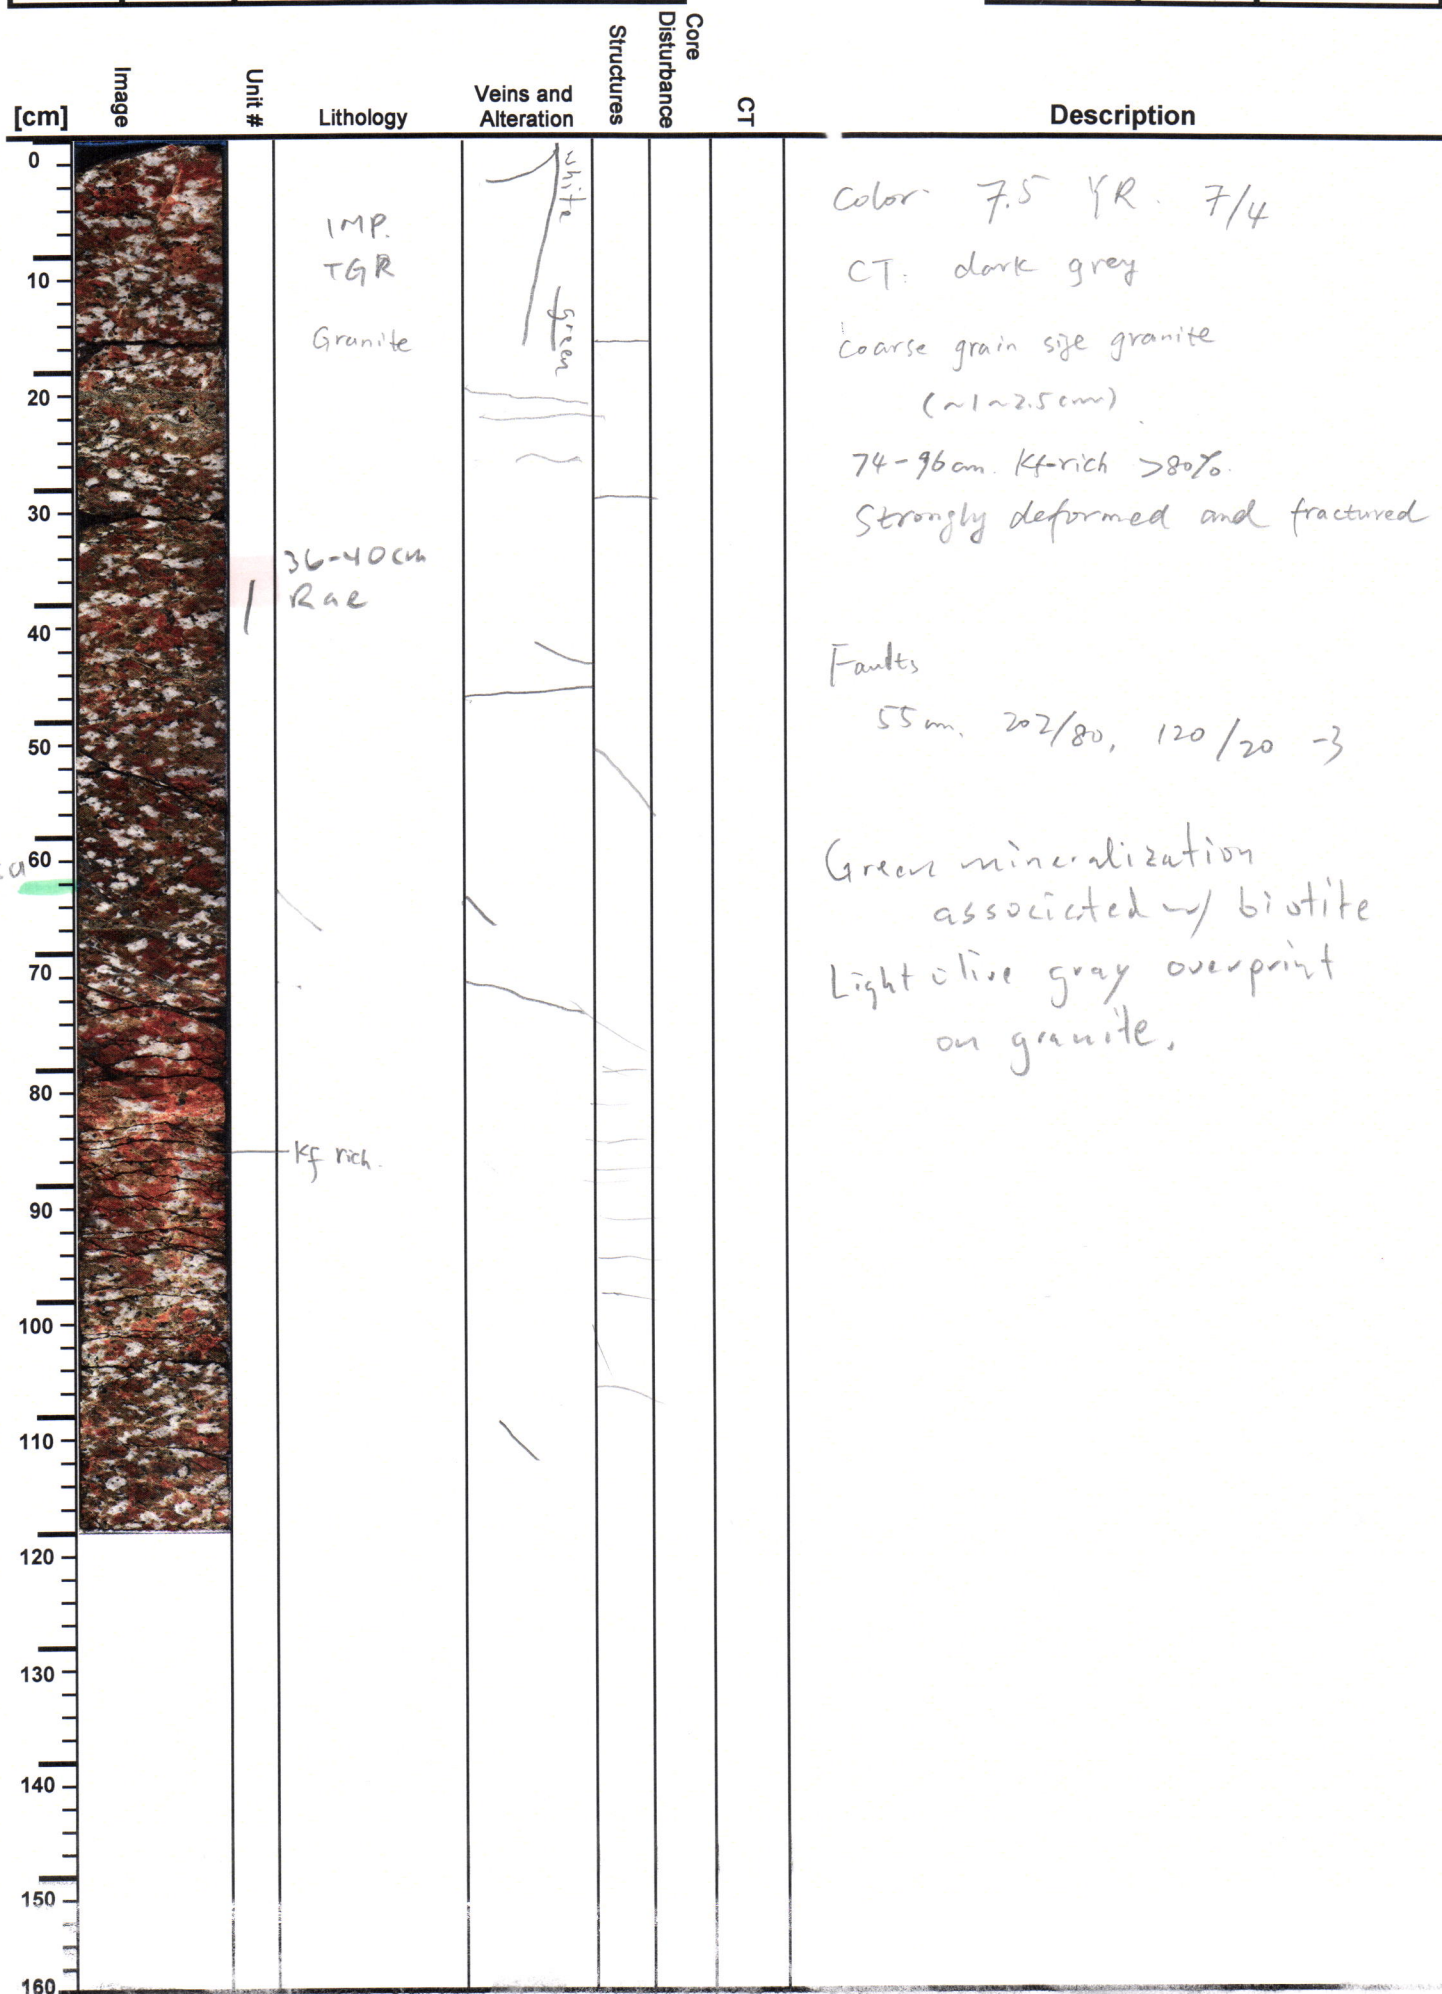 [cm]
Image
Unit #
Lithology
Veins and
Alteration
Structures
Core
Disturbance
CT
Description
0
10
20
30
40
50
60
70
80
90
100
110
120
130
140
150
160
IMP.
TGR
Granite
36-40cm
Rae
Kf rich.
white
green
Color: 7.5 YR. 7/4
CT: dark grey
Coarse grain size granite
(~1~2.5cm)
74-96cm. Kf-rich >80%.
Strongly deformed and fractured
Faults
55cm. 202/80, 120/20 -3
Green mineralization
associated w/ biotite
Light olive gray overprint
on granite.